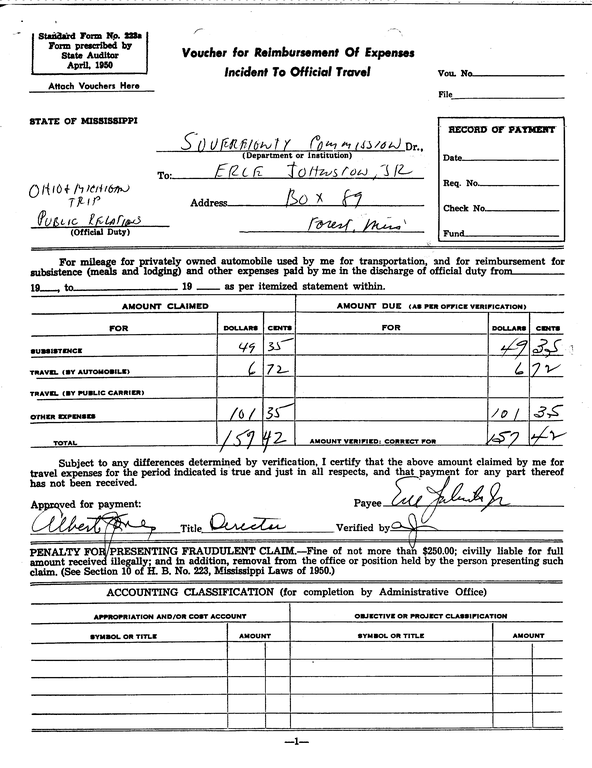 Standard Form No. 223a
Form prescribed by
State Auditor
April, 1950
Attach Vouchers Here
Voucher for Reimbursement Of Expenses
Incident To Official Travel
Vou. No.
File
STATE OF MISSISSIPPI
SOVEREIGNTY COMMISSION Dr.,
(Department or Institution)
To: ERLE JOHNSTON, JR
Address BOX 89
Forest, Miss
OHIO & MICHIGAN
TRIP
PUBLIC RELATIONS
(Official Duty)
RECORD OF PAYMENT
Date
Req. No.
Check No.
Fund
For mileage for privately owned automobile used by me for transportation, and for reimbursement for
subsistence (meals and lodging) and other expenses paid by me in the discharge of official duty from
19 , to 19 as per itemized statement within.
AMOUNT CLAIMED AMOUNT DUE (AS PER OFFICE VERIFICATION)
FOR DOLLARS CENTS FOR DOLLARS CENTS
SUBSISTENCE 49 35 49 35
TRAVEL (BY AUTOMOBILE) 6 72 6 72
TRAVEL (BY PUBLIC CARRIER)
OTHER EXPENSES 101 35 101 35
TOTAL 157 42 AMOUNT VERIFIED: CORRECT FOR 157 42
Subject to any differences determined by verification, I certify that the above amount claimed by me for
travel expenses for the period indicated is true and just in all respects, and that payment for any part thereof
has not been received.
Approved for payment: Payee Erle Johnston Jr
Albert Jones Title Director Verified by AJ
PENALTY FOR PRESENTING FRAUDULENT CLAIM.—Fine of not more than $250.00; civilly liable for full
amount received illegally; and in addition, removal from the office or position held by the person presenting such
claim. (See Section 10 of H. B. No. 223, Mississippi Laws of 1950.)
ACCOUNTING CLASSIFICATION (for completion by Administrative Office)
APPROPRIATION AND/OR COST ACCOUNT OBJECTIVE OR PROJECT CLASSIFICATION
SYMBOL OR TITLE AMOUNT SYMBOL OR TITLE AMOUNT
—1—